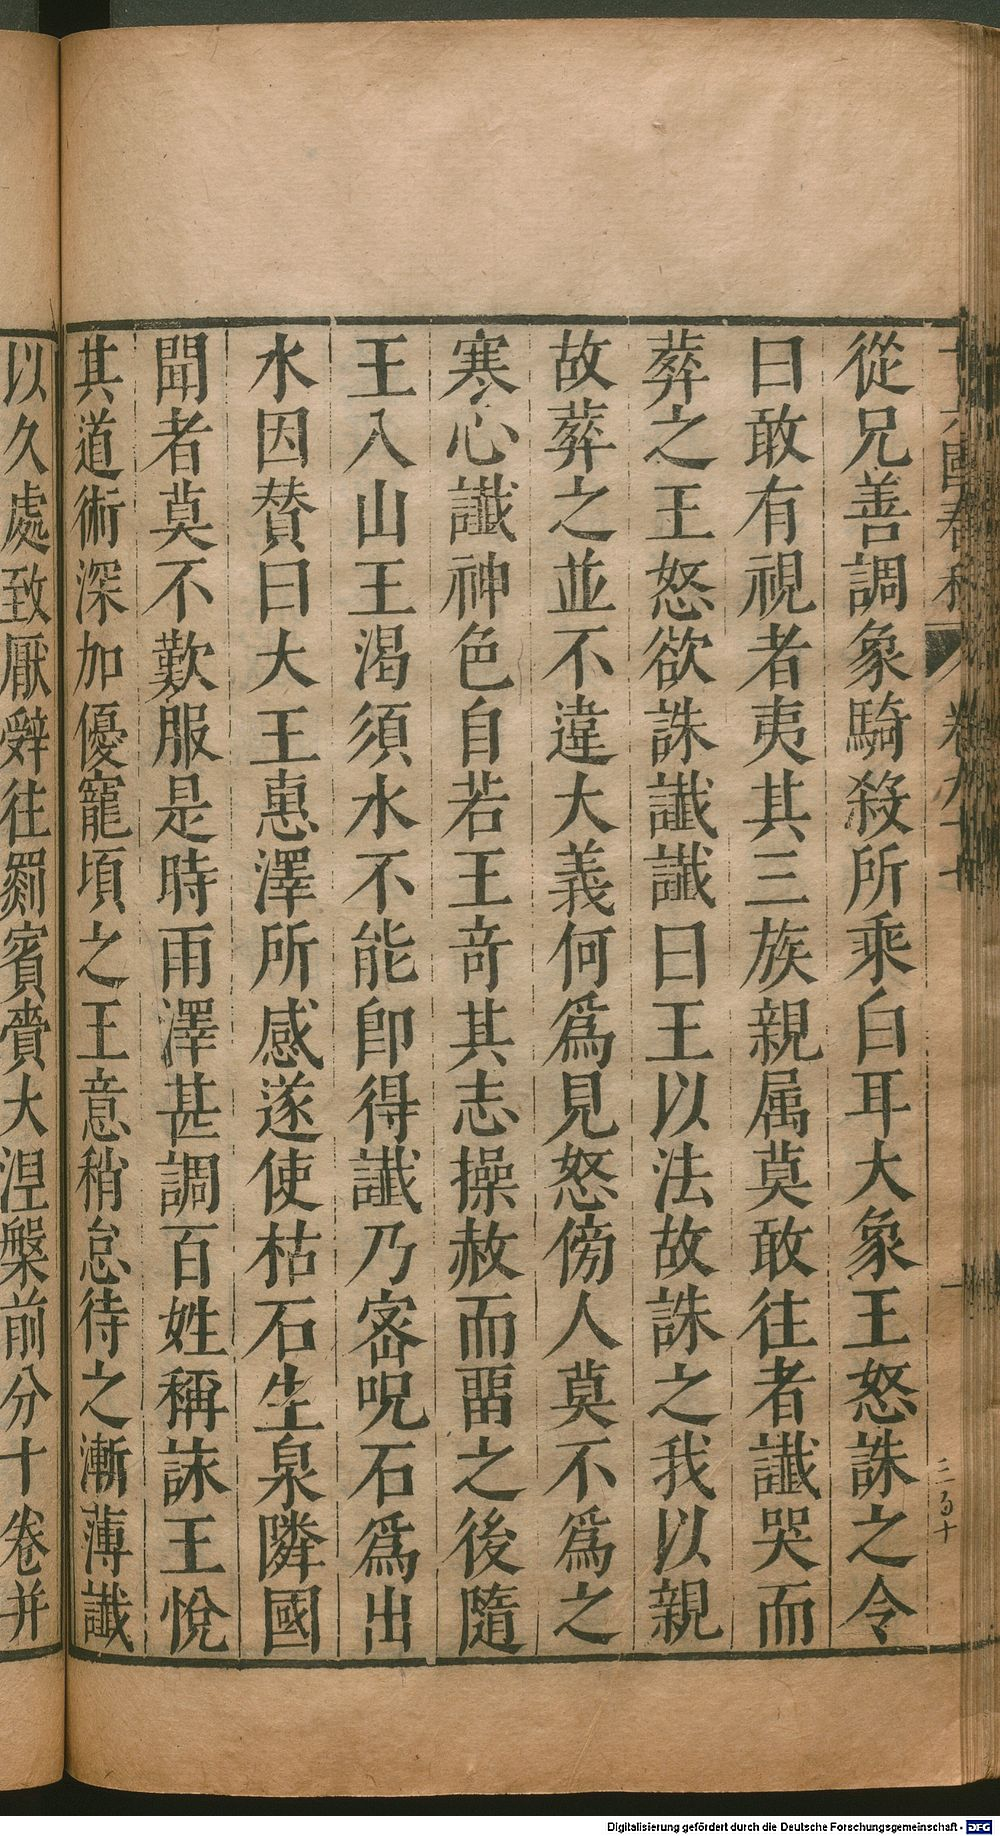 十六國春秋 卷九十七 一
三百十
從兄善調象騎殺所乘白耳大象王怒誅之令
曰敢有視者夷其三族親属莫敢往者讖哭而
葬之王怒欲誅讖讖曰王以法故誅之我以親
故葬之並不違大義何爲見怒傍人莫不爲之
寒心讖神色自若王奇其志操赦而畱之後隨
王入山王渴須水不能卽得讖乃密呪石爲出
水因賛曰大王惠澤所感遂使枯石生泉隣國
聞者莫不歎服是時雨澤甚調百姓稱詠王悅
其道術深加優寵頃之王意稍怠待之漸薄讖
以久處致厭辭往罽賓賫大涅槃前分十卷并
Digitalisierung gefördert durch die Deutsche Forschungsgemeinschaft - DFG